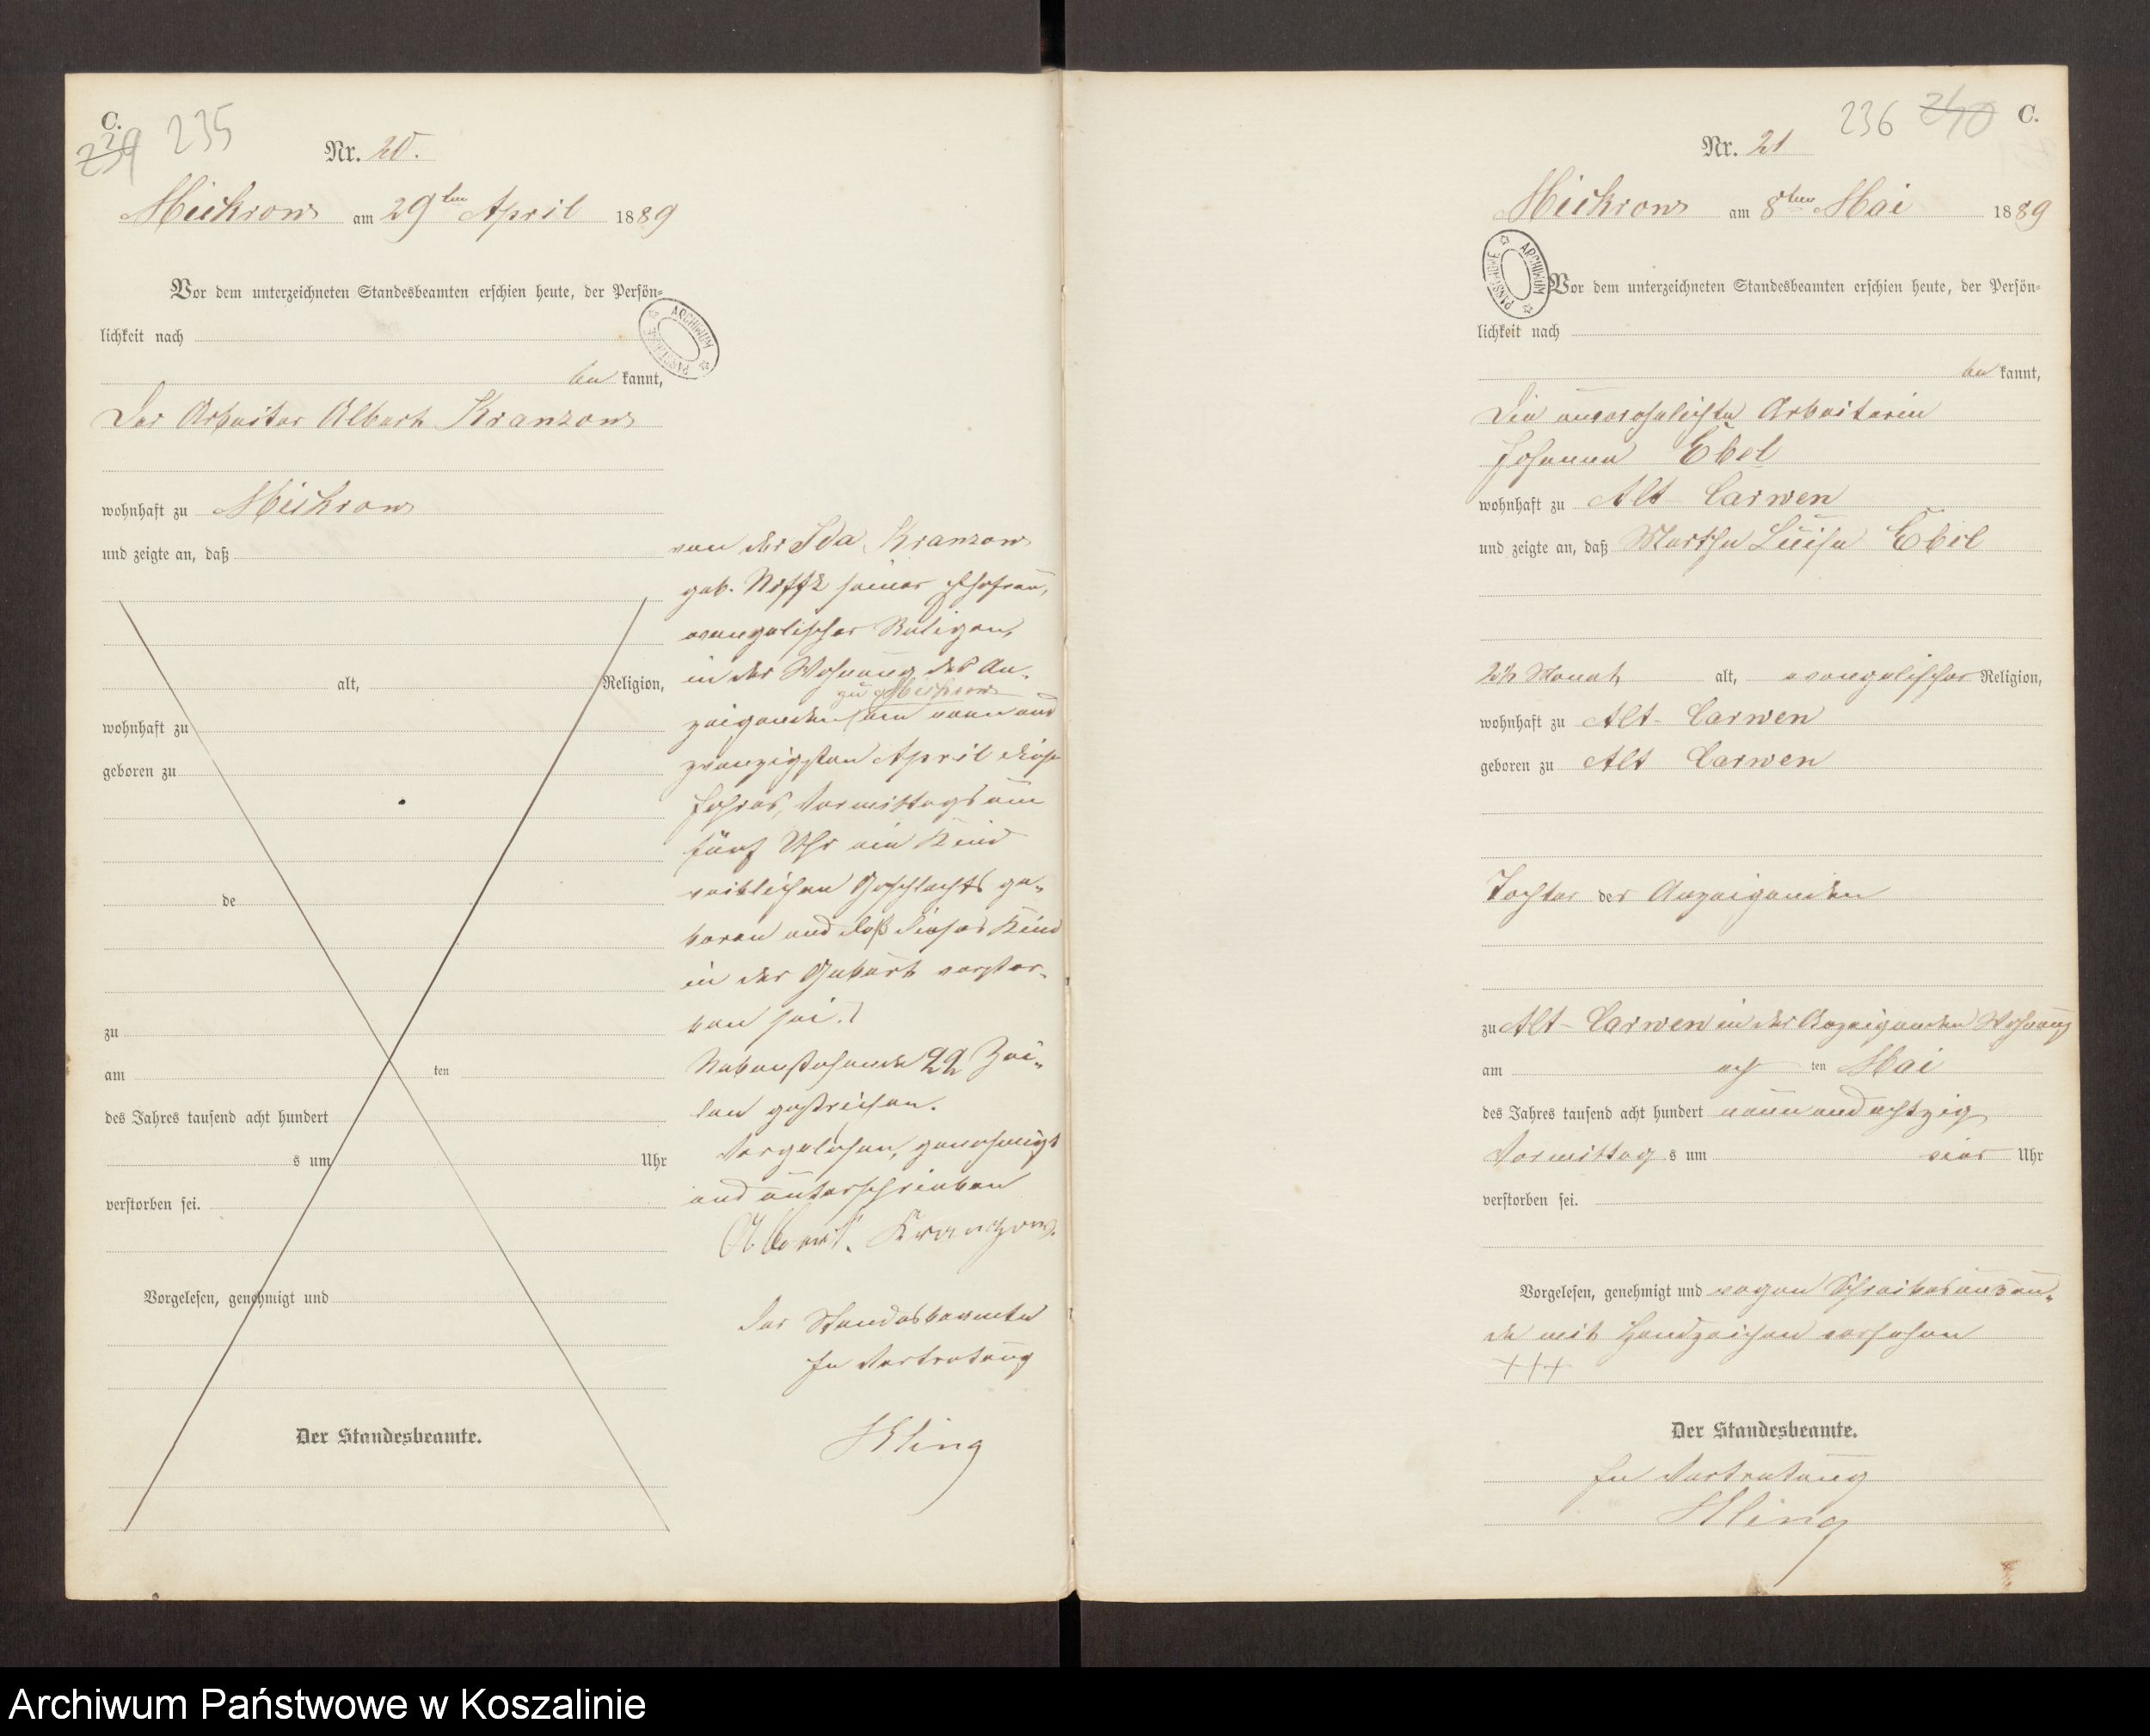 C.
239 235
Nr. 20.
Mickrow am 29ten April 1889
Vor dem unterzeichneten Standesbeamten erschien heute, der Persön-
lichkeit nach
be kannt,
Der Arbeiter Albert Kranzow
wohnhaft zu Mickrow
und zeigte an, daß
alt, Religion,
wohnhaft zu
geboren zu
de
zu
am ten
des Jahres tausend acht hundert
s um Uhr
verstorben sei.
Vorgelesen, genehmigt und
Der Standesbeamte.
ARCHIWUM PAŃSTWOWE
von der Ida Kranzow
geb. seiner Ehefrau,
evangelischer Religion,
in der Wohnung des An-
zu Mickrow
zeigenden am neun und
zwanzigsten April dieses
Jahres, Vormittags um
fünf Uhr ein Kind
weiblichen Geschlechts ge-
boren und daß dieses Kind
in der Geburt verstor-
ben sei.
Nebenstehende 22 Zei-
len gestrichen.
Vorgelesen, genehmigt
und unterschrieben
Albert Kranzow.
Der Standesbeamte
In Vertretung
Kling
236 240 C.
Nr. 21
Mickrow am 8ten Mai 1889
ARCHIWUM PAŃSTWOWE
Vor dem unterzeichneten Standesbeamten erschien heute, der Persön-
lichkeit nach
be kannt,
Die unverehelichte Arbeiterin
Johanna Ebel
wohnhaft zu Alt Carwen
und zeigte an, daß Martha Luise Ebel
2½ Monat alt, evangelischer Religion,
wohnhaft zu Alt-Carwen
geboren zu Alt Carwen
Tochter der Anzeigenden
zu Alt-Carwen in der Anzeigenden Wohnung
am acht ten Mai
des Jahres tausend acht hundert neun und achtzig
Vormittag s um vier Uhr
verstorben sei.
Vorgelesen, genehmigt und wegen Schreibensunkun-
de mit Handzeichen versehen
+++
Der Standesbeamte.
In Vertretung
Kling
Archiwum Państwowe w Koszalinie